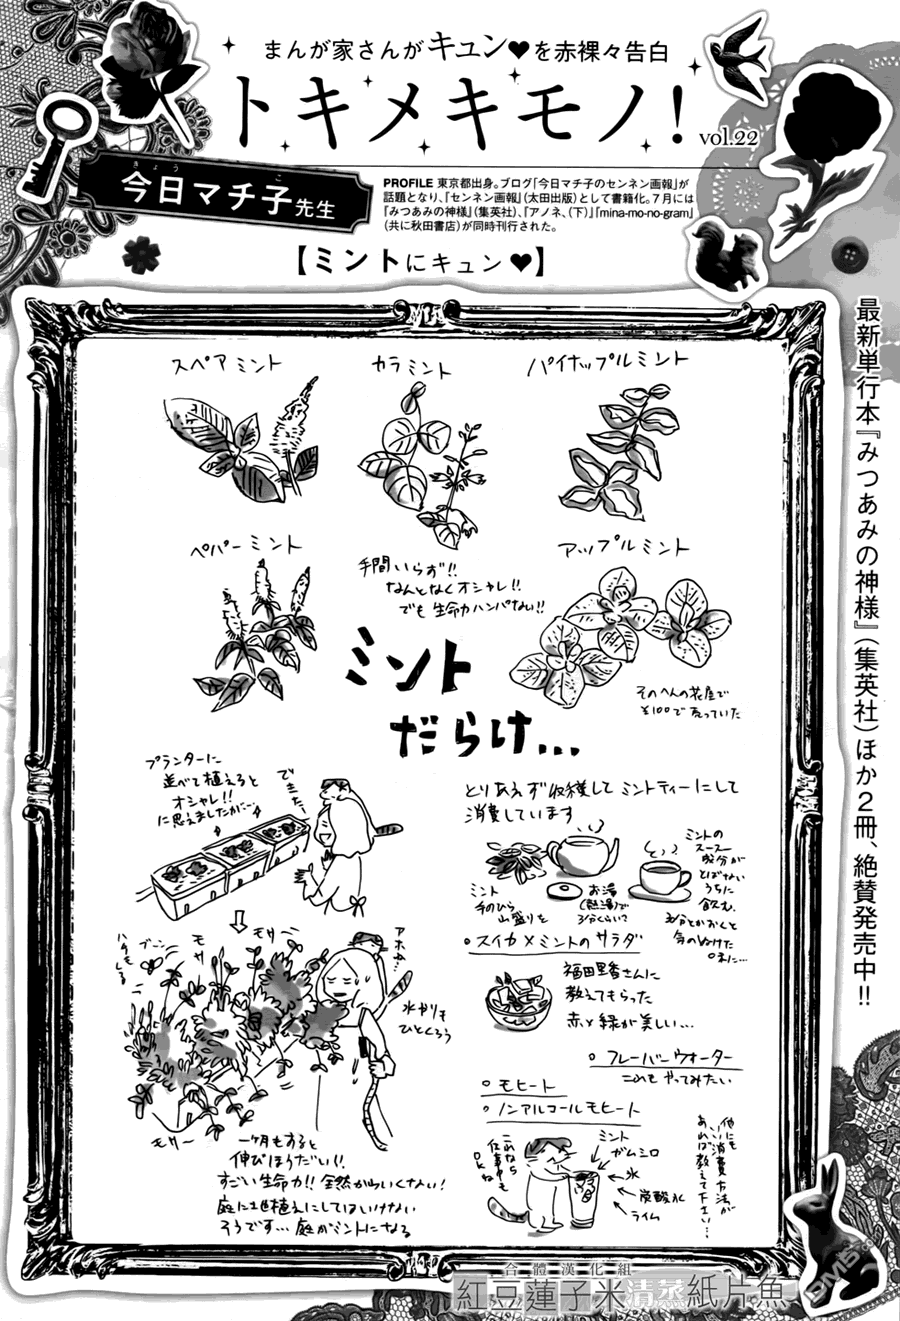 まんが家さんがキュン♥を赤裸々告白
トキメキモノ!
vol.22
きょう こ
今日マチ子先生
PROFILE 東京都出身。ブログ「今日マチ子のセンネン画報」が
話題となり、「センネン画報」(太田出版)として書籍化。7月には
『みつあみの神様』(集英社)、『アノネ、(下)』『mina-mo-no-gram』
(共に秋田書店)が同時刊行された。
【ミントにキュン♥】
最新単行本『みつあみの神様』(集英社)ほか2冊、絶賛発売中!!
スペアミント
カラミント
パイナップルミント
ペパーミント
手間いらず!!
なんとなくオシャレ!!
でも生命力ハンパない!!
アップルミント
そのへんの花屋で
¥100で売っていた
ミント
だらけ…
プランターに
並べて植えると
オシャレ!!
に思えましたが…
できた
とりあえず収穫してミントティーにして
消費しています
ミント
手のひら
山盛りを
お湯
(熱湯)で
3分くらい?
ミントの
スースー
成分が
とばない
うちに
飲む。
ハチもくる
ブーン
モサ
モサ〜
アホや…
水やりも
ひとくろう
モサ〜
スイカ×ミントのサラダ
福田里香さんに
教えてもらった
赤×緑が美しい…
フレーバーウォーター
これもやってみたい
モヒート
ノンアルコールモヒート
一ヶ月もすると
伸びほうだい!!
すごい生命力!! 全然かわいくない!
庭に地植えにしてはいけない
そうです…庭がミントになる
これなら
仕事中も
OKね
ミント
ガムシロ
氷
炭酸水
ライム
他にも
いい消費方法が
あれば教えて下さい…
合體漢化組
紅豆蓮子米清蒸紙片魚